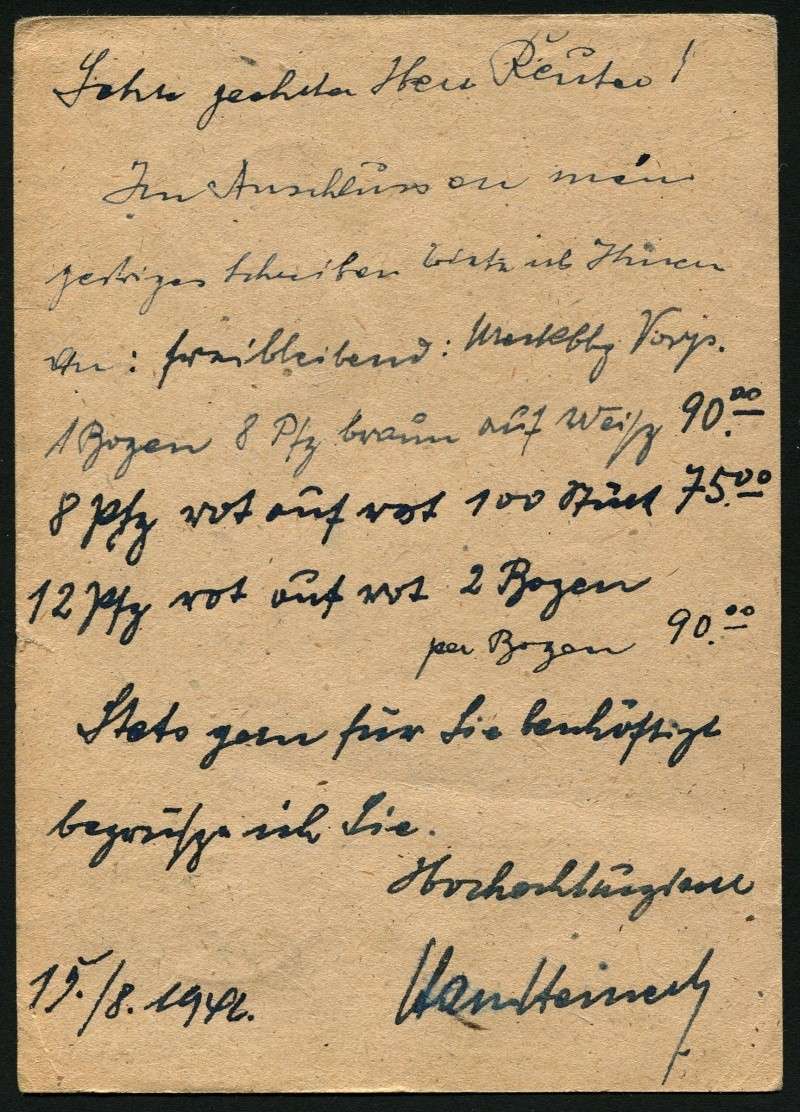 Sehr geehrter Herr Reuter!
Im Anschluss an mein
gestriges Schreiben biete ich Ihnen
an: freibleibend: Mecklbg Vorp.
1 Bogen 8 Pfg braun auf Weiß 90.00
8 Pfg rot auf rot 100 Stück 75.00
12 Pfg rot auf rot 2 Bogen
per Bogen 90.00
Stets gern für Sie beschäftigt
begrüße ich Sie.
Hochachtungsvoll
15./8. 194